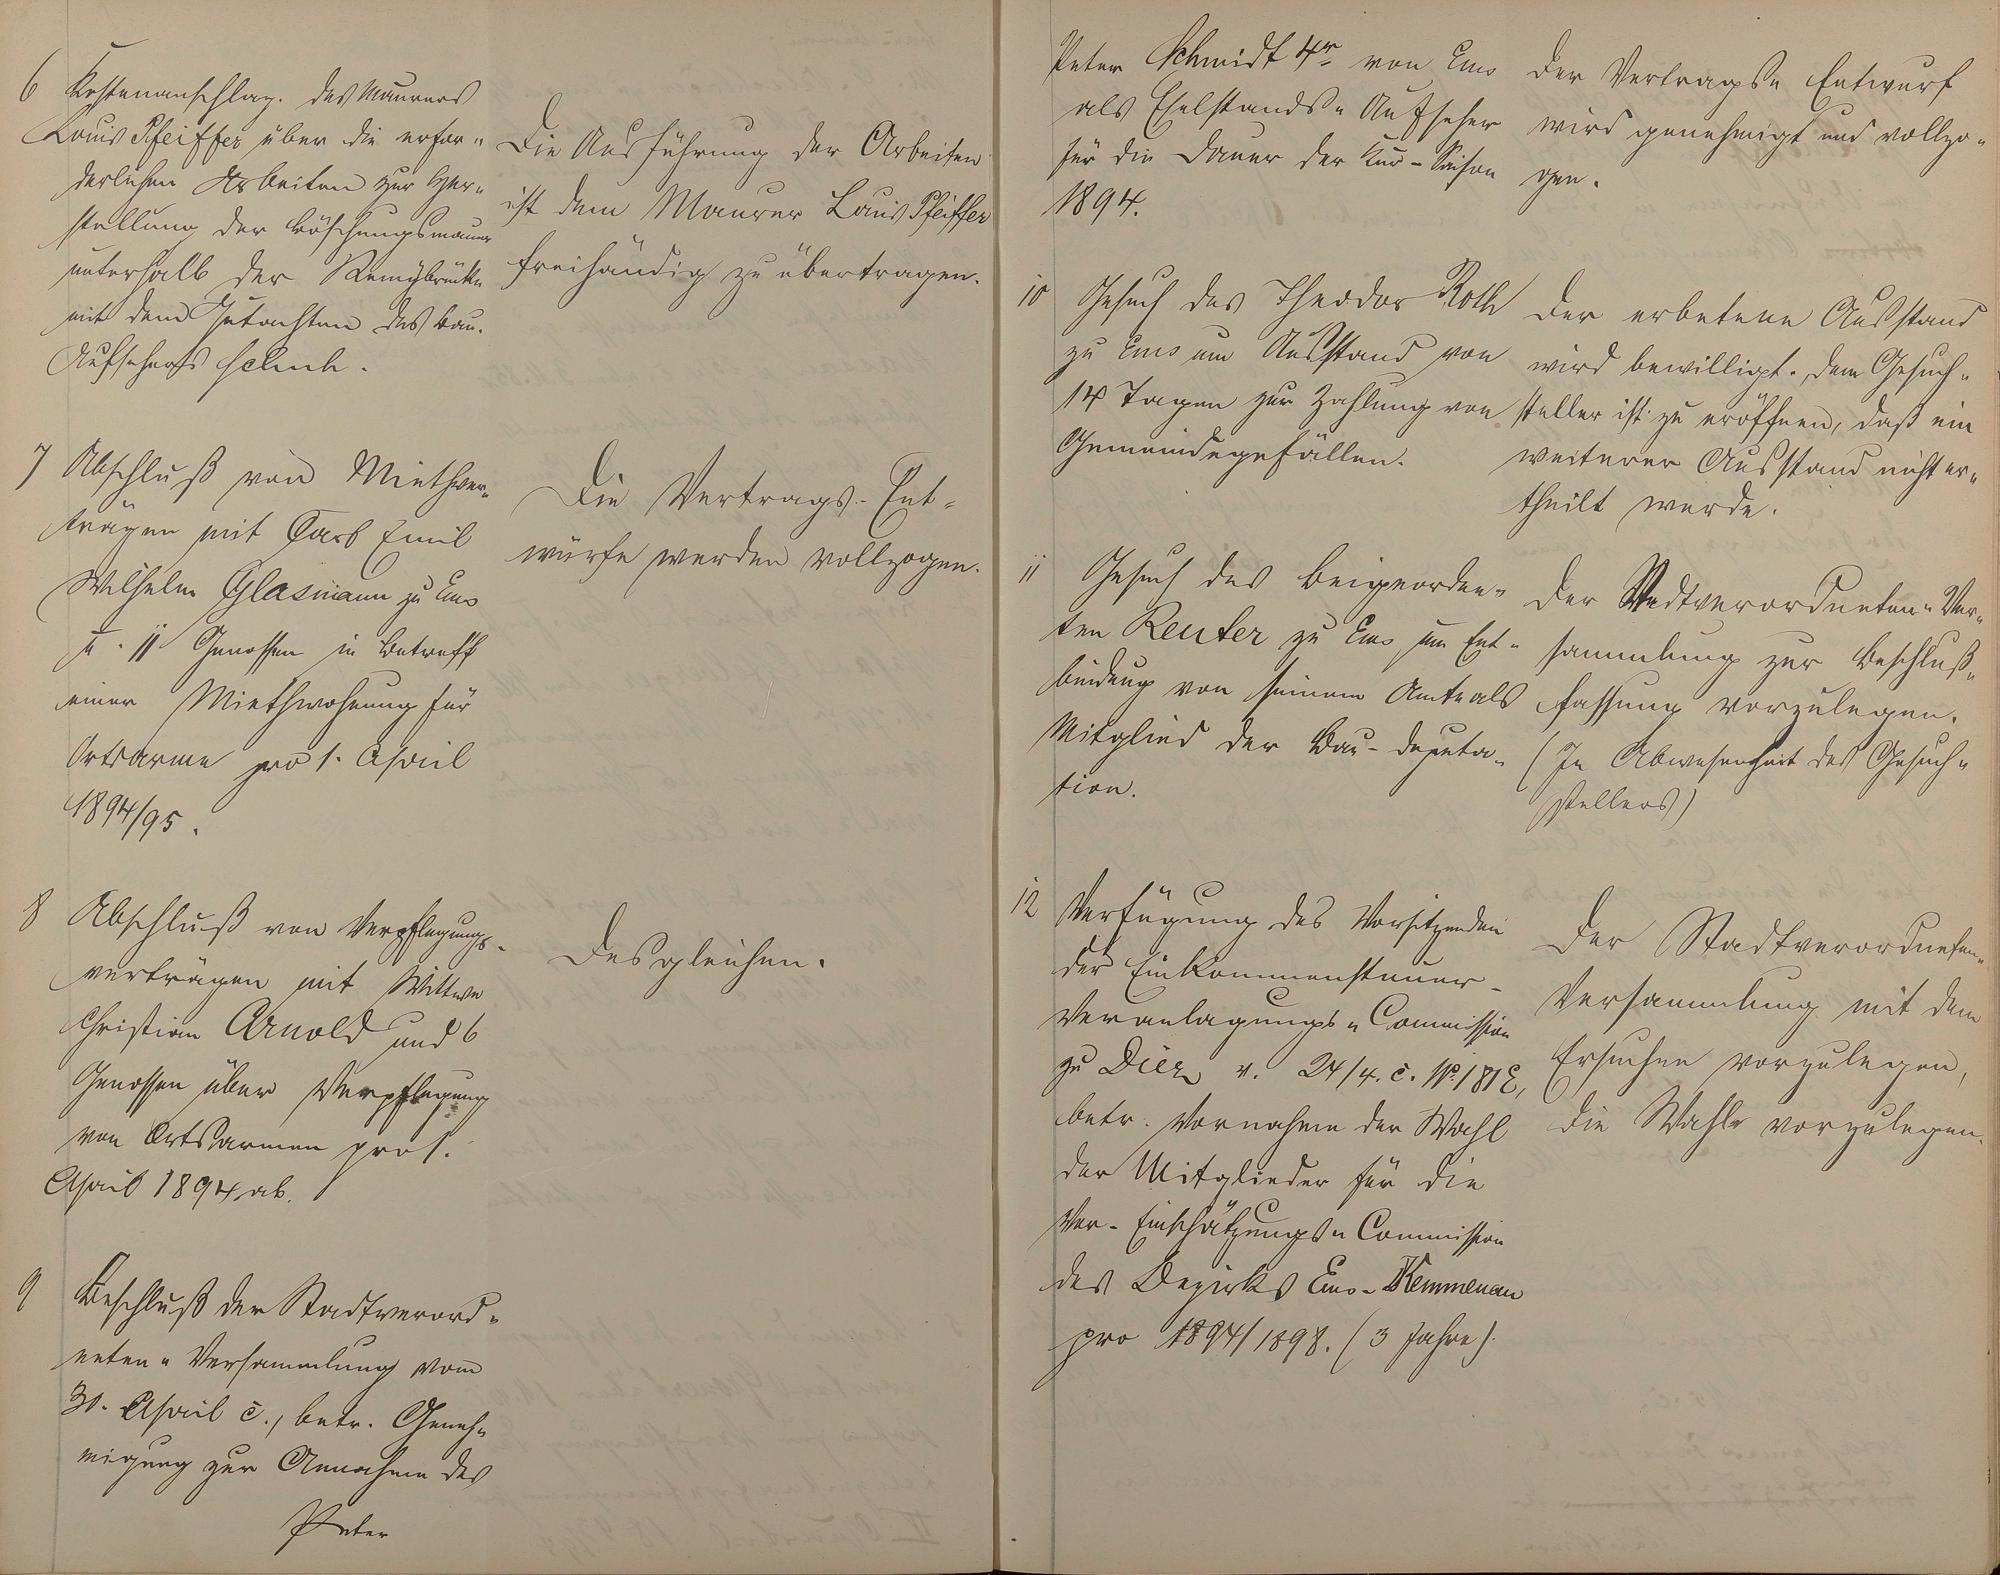 6 Kostenanschlag des Maurers
Louis Pfeiffer über die erfor-
derlichen Arbeiten zur Her-
stellung der Böschungsmauer
unterhalb der Remybrücke
mit dem Gutachten des Bau-
Aufsehers Schuh.
Die Ausführung der Arbeiten
ist dem Maurer Louis Pfeiffer
freihändig zu übertragen.
7 Abschluß von Miethver-
trägen mit Carl Emil
Wilhelm Glasmann zu Ems
u. 11 Genossen in Betreff
einer Miethwohnung für
Ortsarme pro 1. April
1894/95.
Die Vertrags-Ent-
würfe werden vollzogen.
8 Abschluß von Verpflegungs-
verträgen mit Wittwe
Christian Arnold und 6
Genossen über Verpflegung
von Ortsarmen pro 1.
April 1894 ab.
Desgleichen.
9 Beschluß der Stadtverord-
neten-Versammlung vom
30. April c., betr. Geneh-
migung zur Annahme des
Peter
Peter Schmidt 4r von Ems
als Eselstands-Aufseher
für die Dauer der Kur-Saison
1894.
Der Vertrags-Entwurf
wird genehmigt und vollzo-
gen.
10 Gesuch des Theodor Roth
zu Ems um Ausstand von
14 Tagen zur Zahlung von
Gemeindegefällen.
Der erbetene Ausstand
wird bewilligt. Dem Gesuch-
steller ist zu eröffnen, daß ein
weiterer Ausstand nicht er-
theilt werde.
11 Gesuch des Beigeordne-
ten Reuter zu Ems um Ent-
bindung von seinem Amte als
Mitglied der Bau-Deputa-
tion.
Der Stadtverordneten-Ver-
sammlung zur Beschluß-
fassung vorzulegen.
(In Abwesenheit des Gesuch-
stellers)
12 Verfügung des Vorsitzenden
der Einkommensteuer-
Veranlagungs-Commission
zu Diez v. 24/4. c. No. 181 E,
betr. Vornahme der Wahl
der Mitglieder für die
Vor-Einschätzungs-Commission
des Bezirks Ems-Kemmenau
pro 1894/1898. (3 Jahre).
Der Stadtverordneten-
Versammlung mit dem
Ersuchen vorzulegen,
die Wahl vorzulegen.